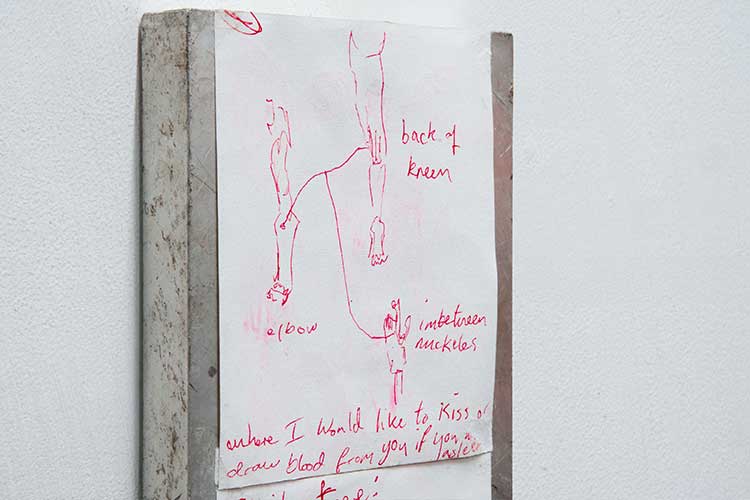 back of
kneen
elbow
inbetween
nuckeles
where I would like to Kiss or
draw blood from you if you
asleep